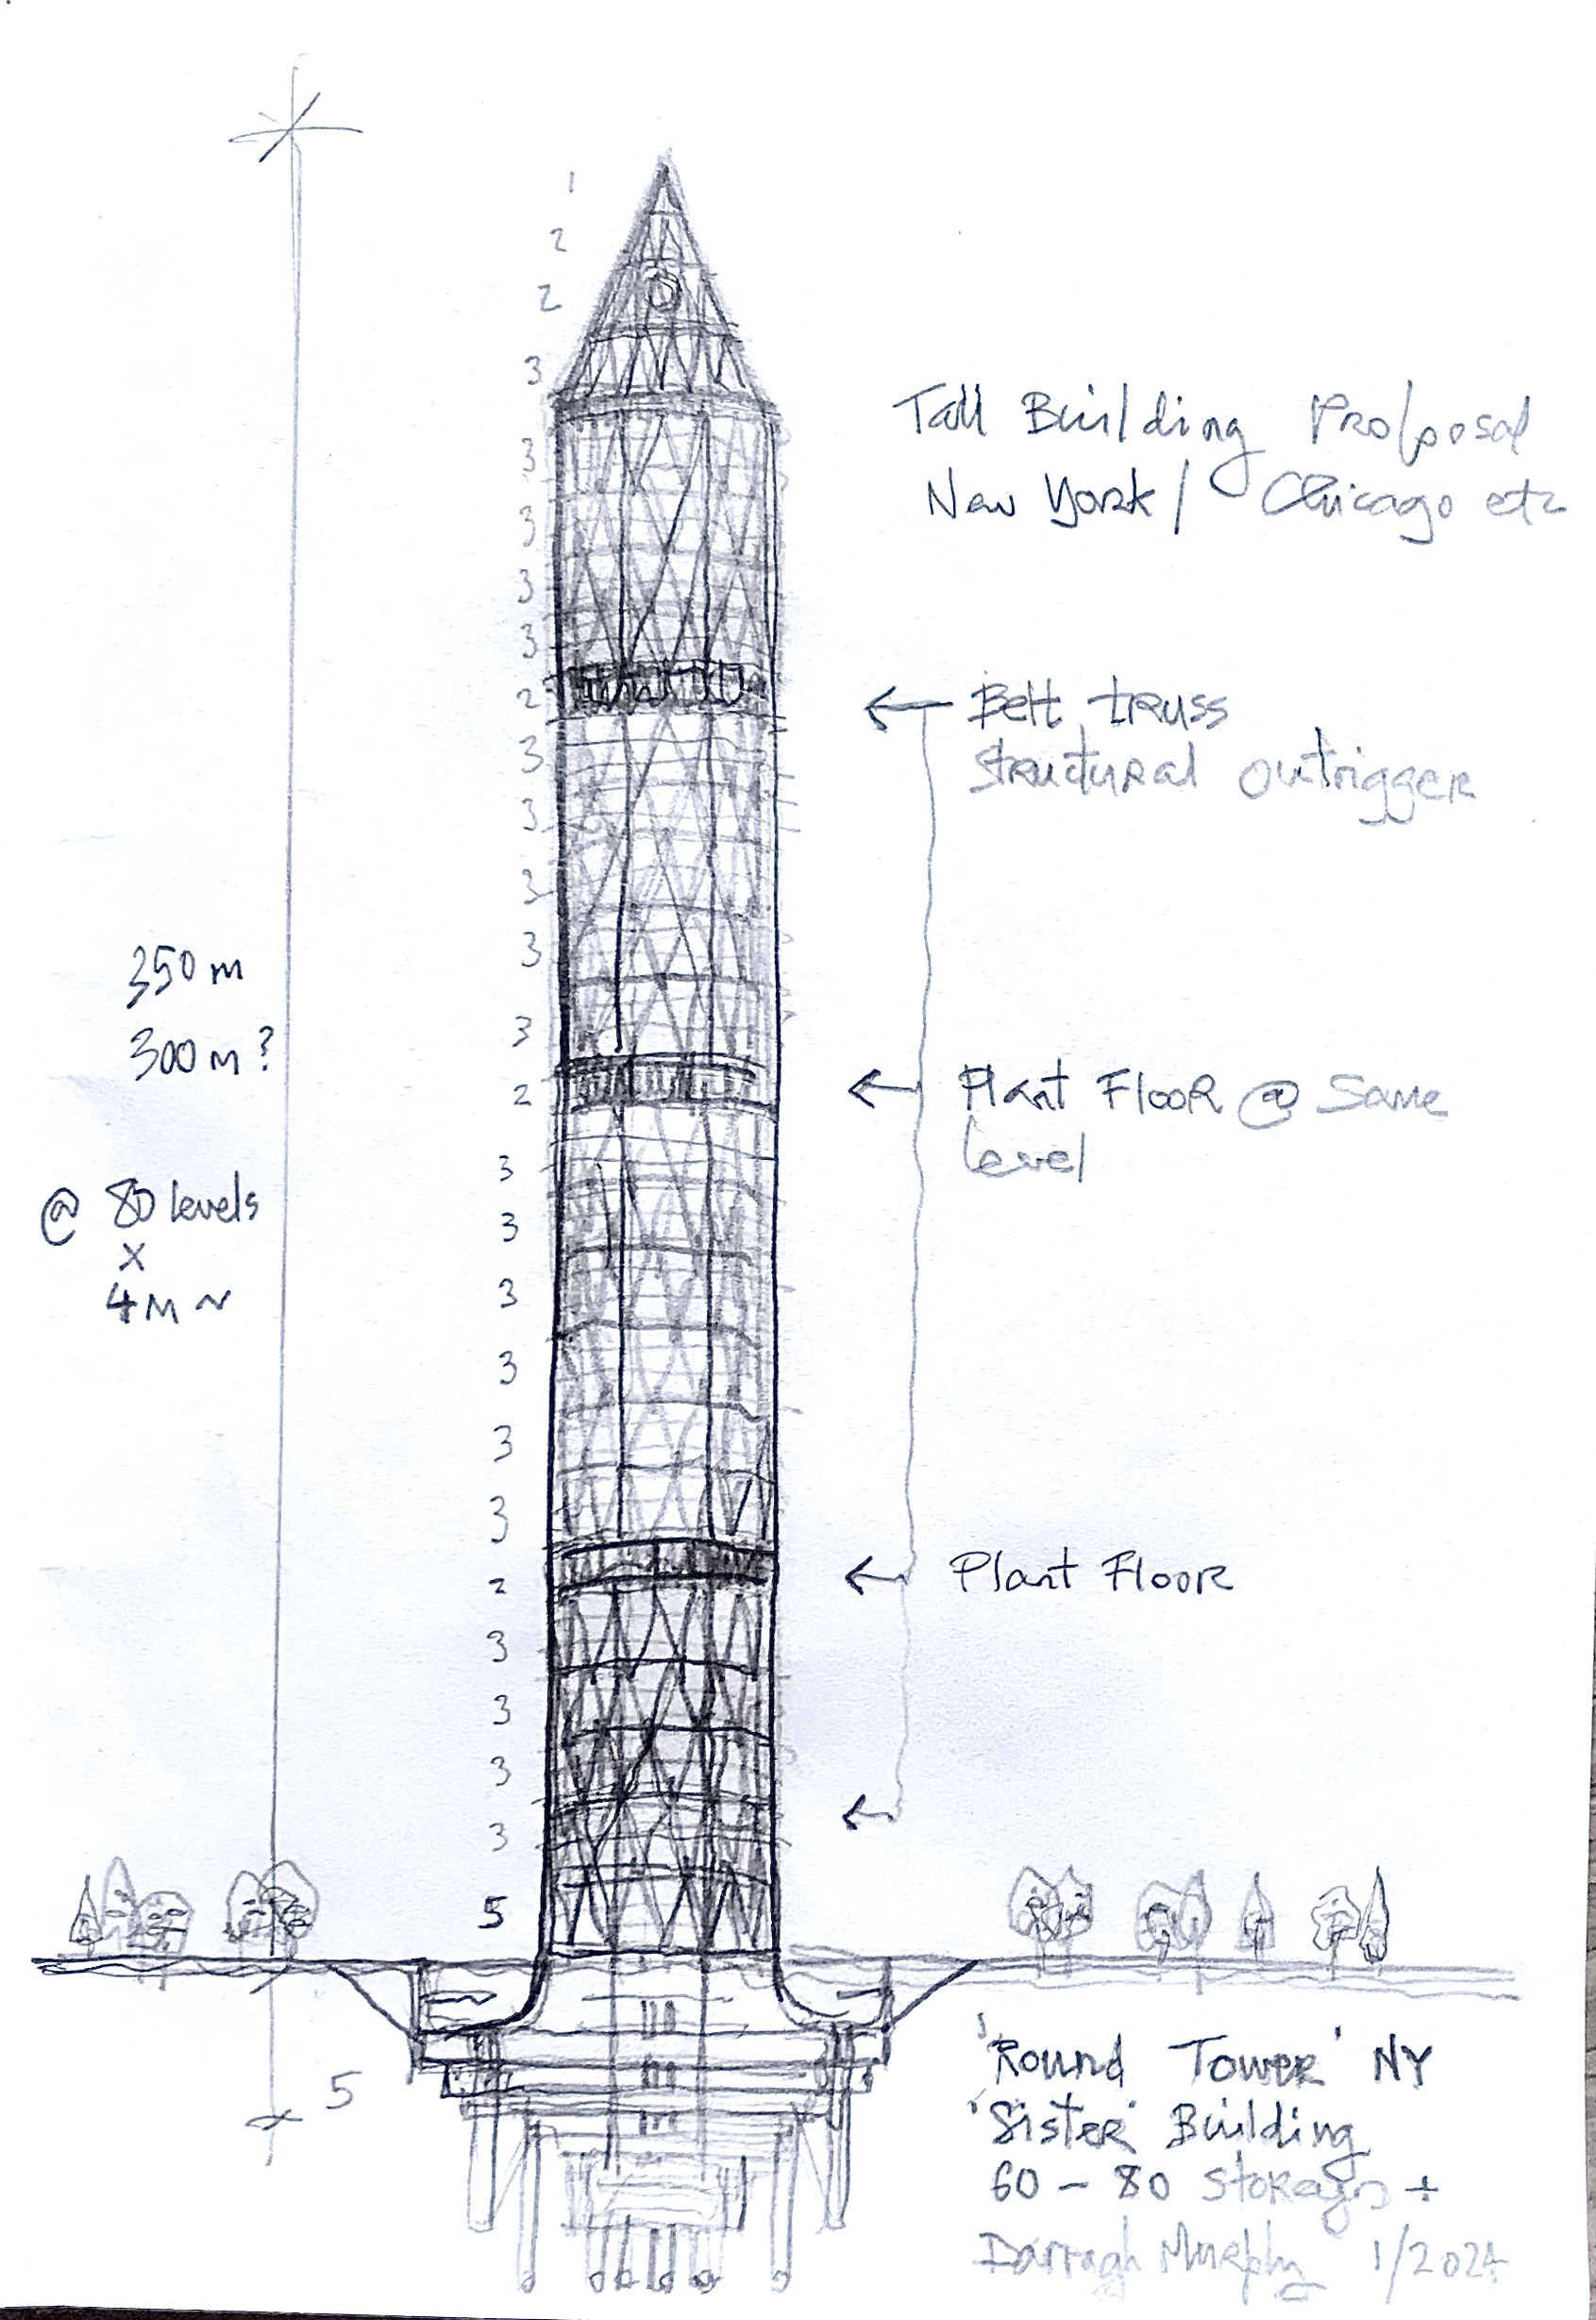 1
2
2
3
3
3
3
3
2
3
3
3
3
3
2
3
3
3
3
3
3
2
3
3
3
3
5
5
350 m
300 m ?
@ 80 levels
x
4 M ~
Tall Building Proposal
New York / Chicago etc
Belt truss
Structural Outrigger
Plant Floor @ Same
level
Plant Floor
'Round Tower' NY
'Sister' Building
60 - 80 Storeys +
Darragh Murphy 1/2024